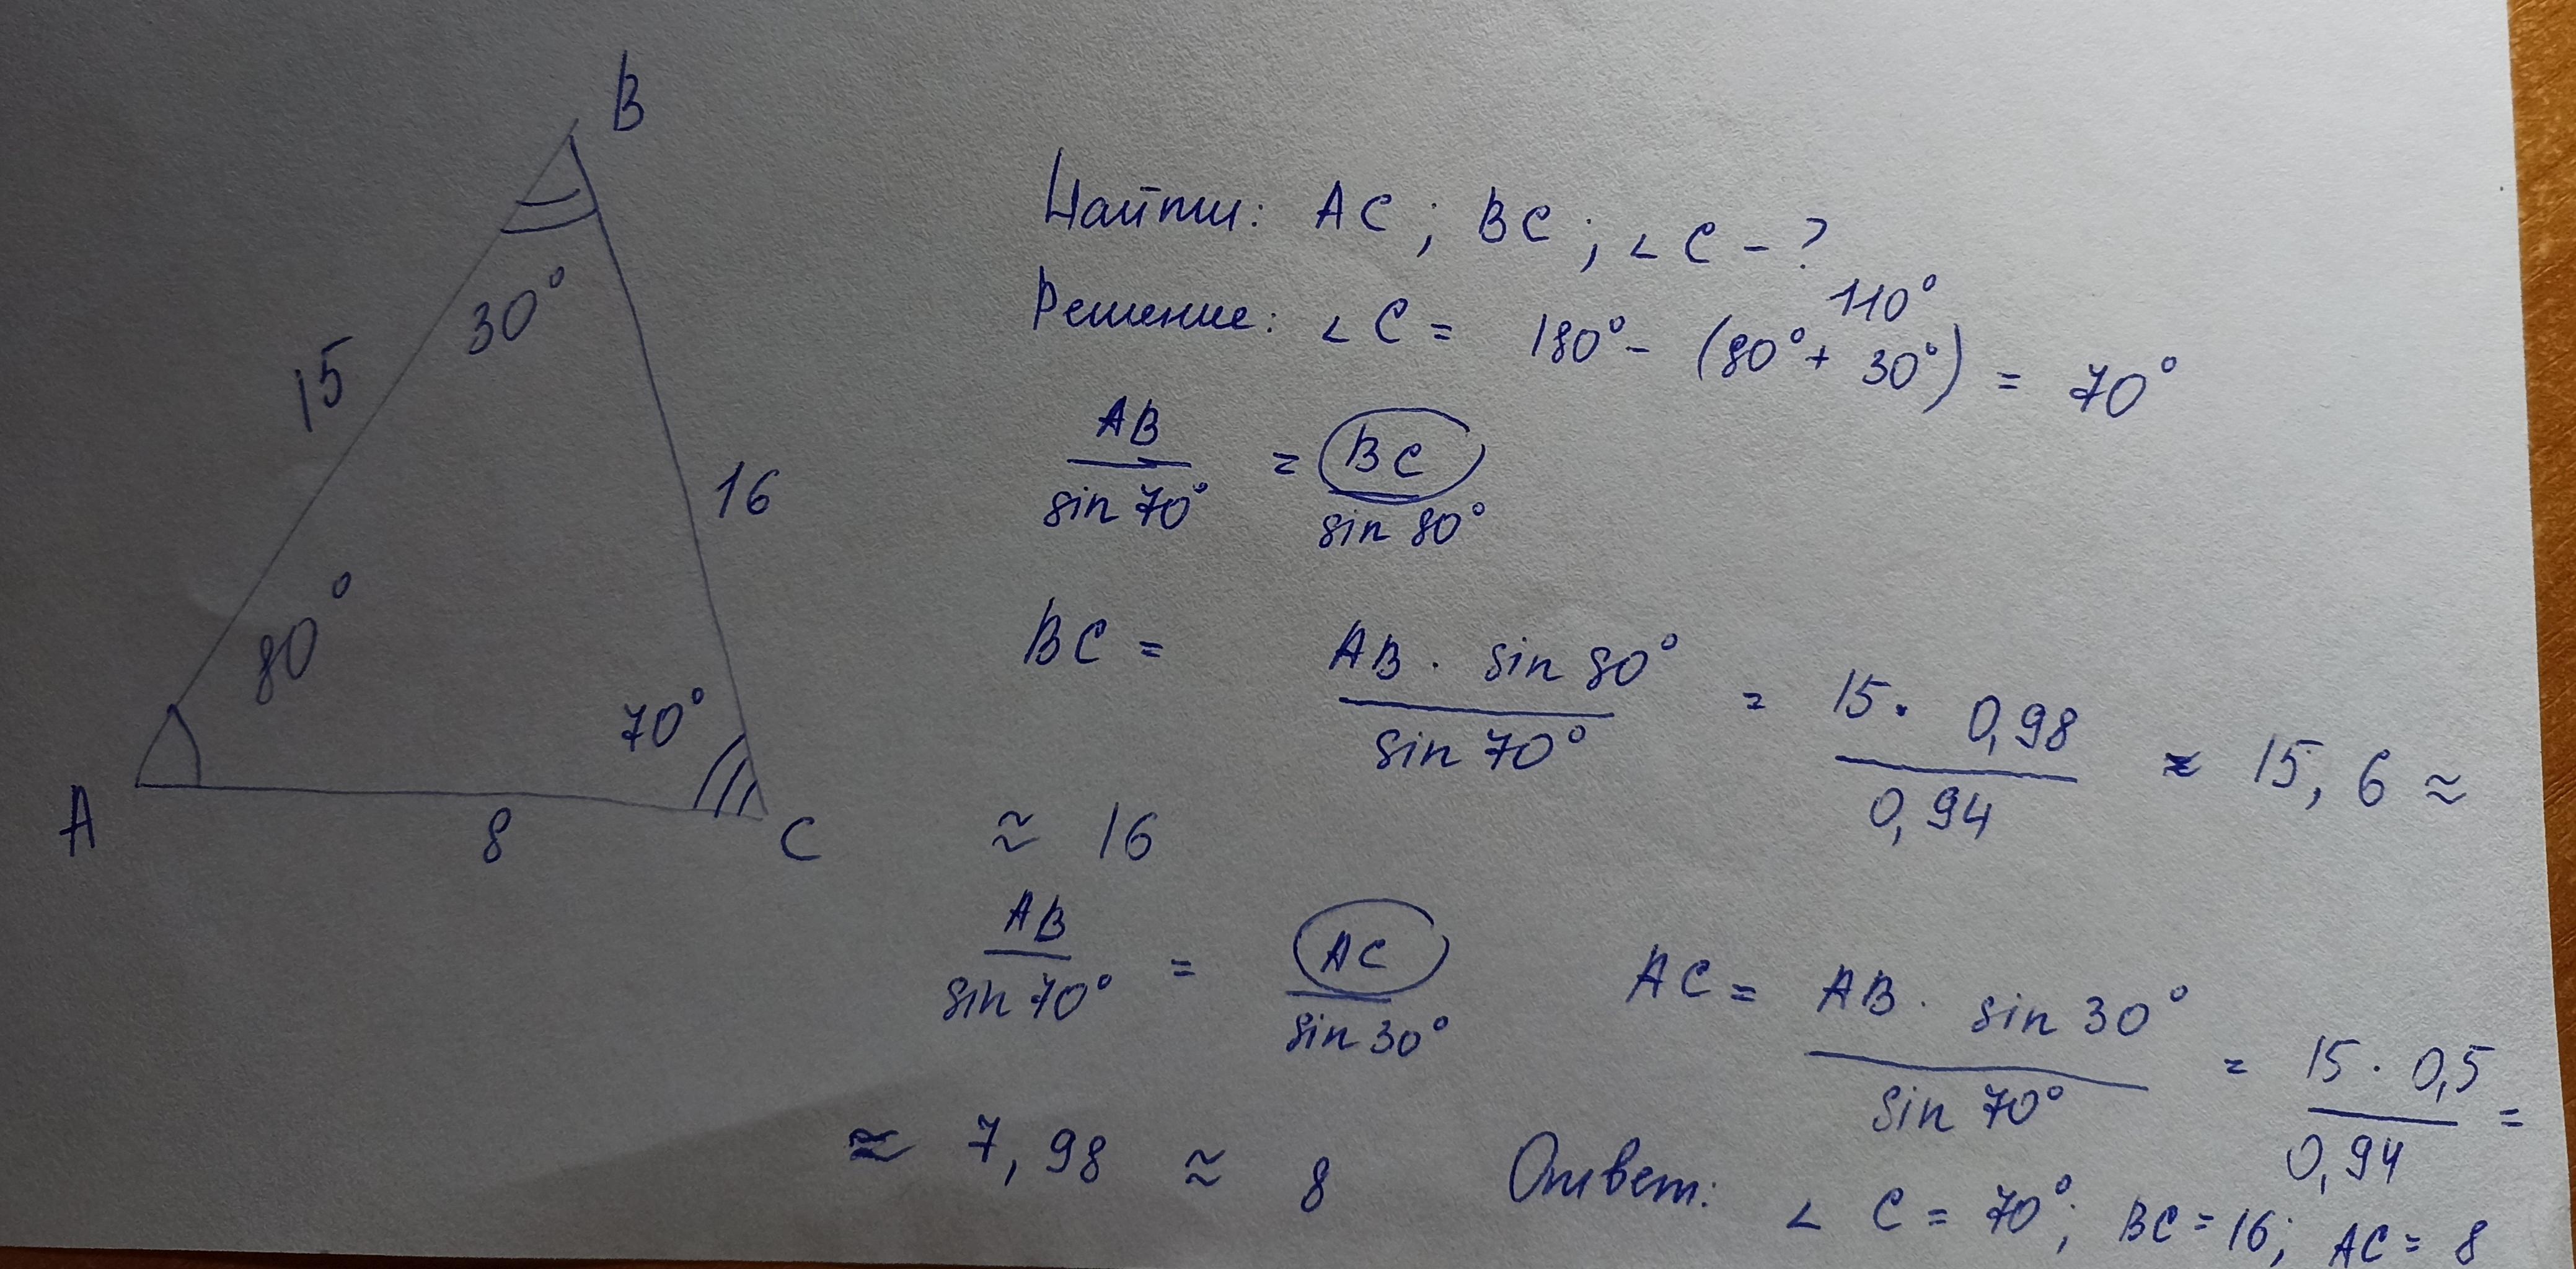 B
30°
15
16
80°
70°
A
8
C
Найти: AC; BC; ∠C - ?
110°
Решение: ∠C = 180° - (80° + 30°) = 70°
AB / sin 70° = BC / sin 80°
BC = AB · sin 80° / sin 70° = 15 · 0,98 / 0,94 ≈ 15,6 ≈
≈ 16
AB / sin 70° = AC / sin 30°
AC = AB · sin 30° / sin 70° = 15 · 0,5 / 0,94 =
≈ 7,98 ≈ 8
Ответ: ∠C = 70°; BC = 16; AC = 8